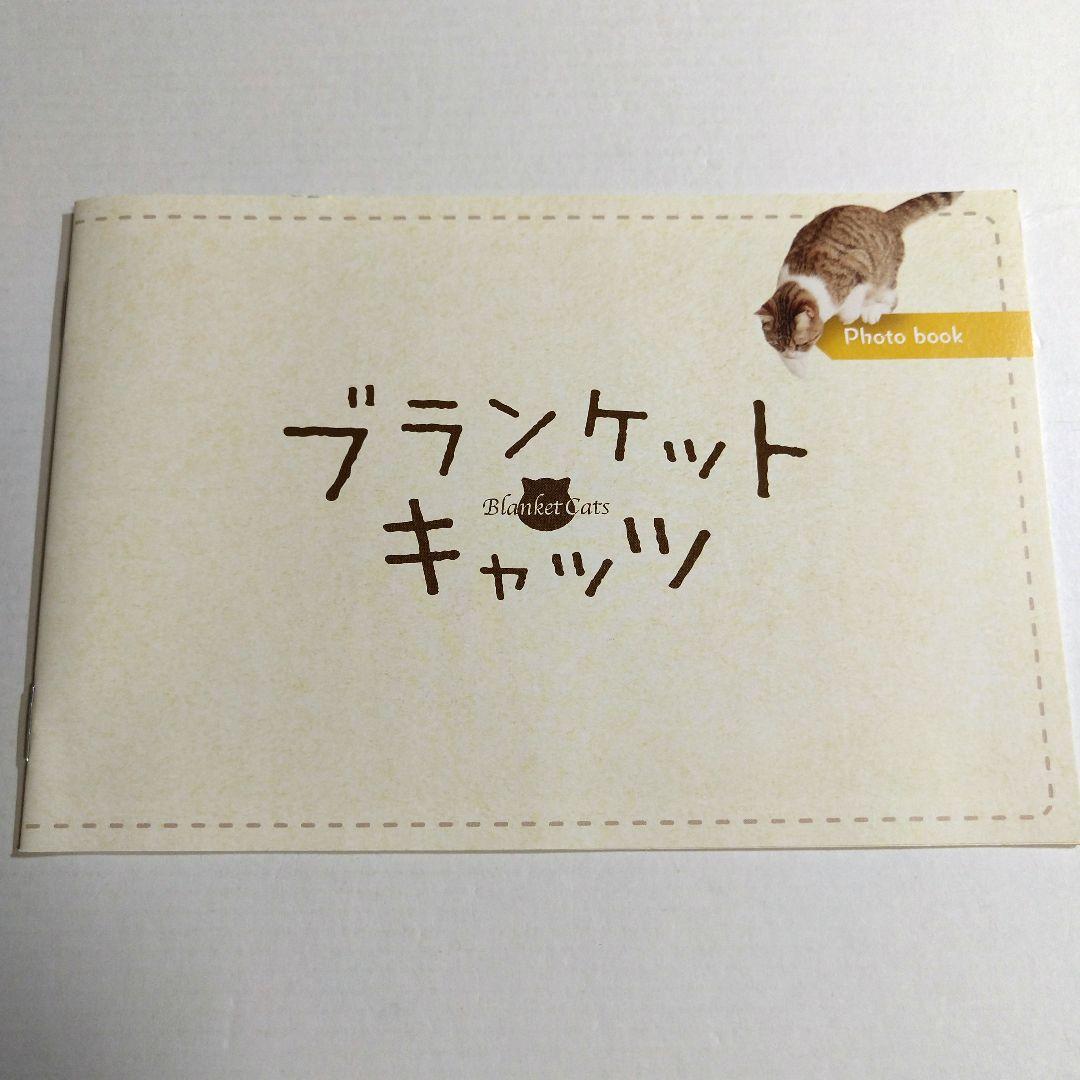 Photo book
ブランケット
Blanket Cats
キャッツ